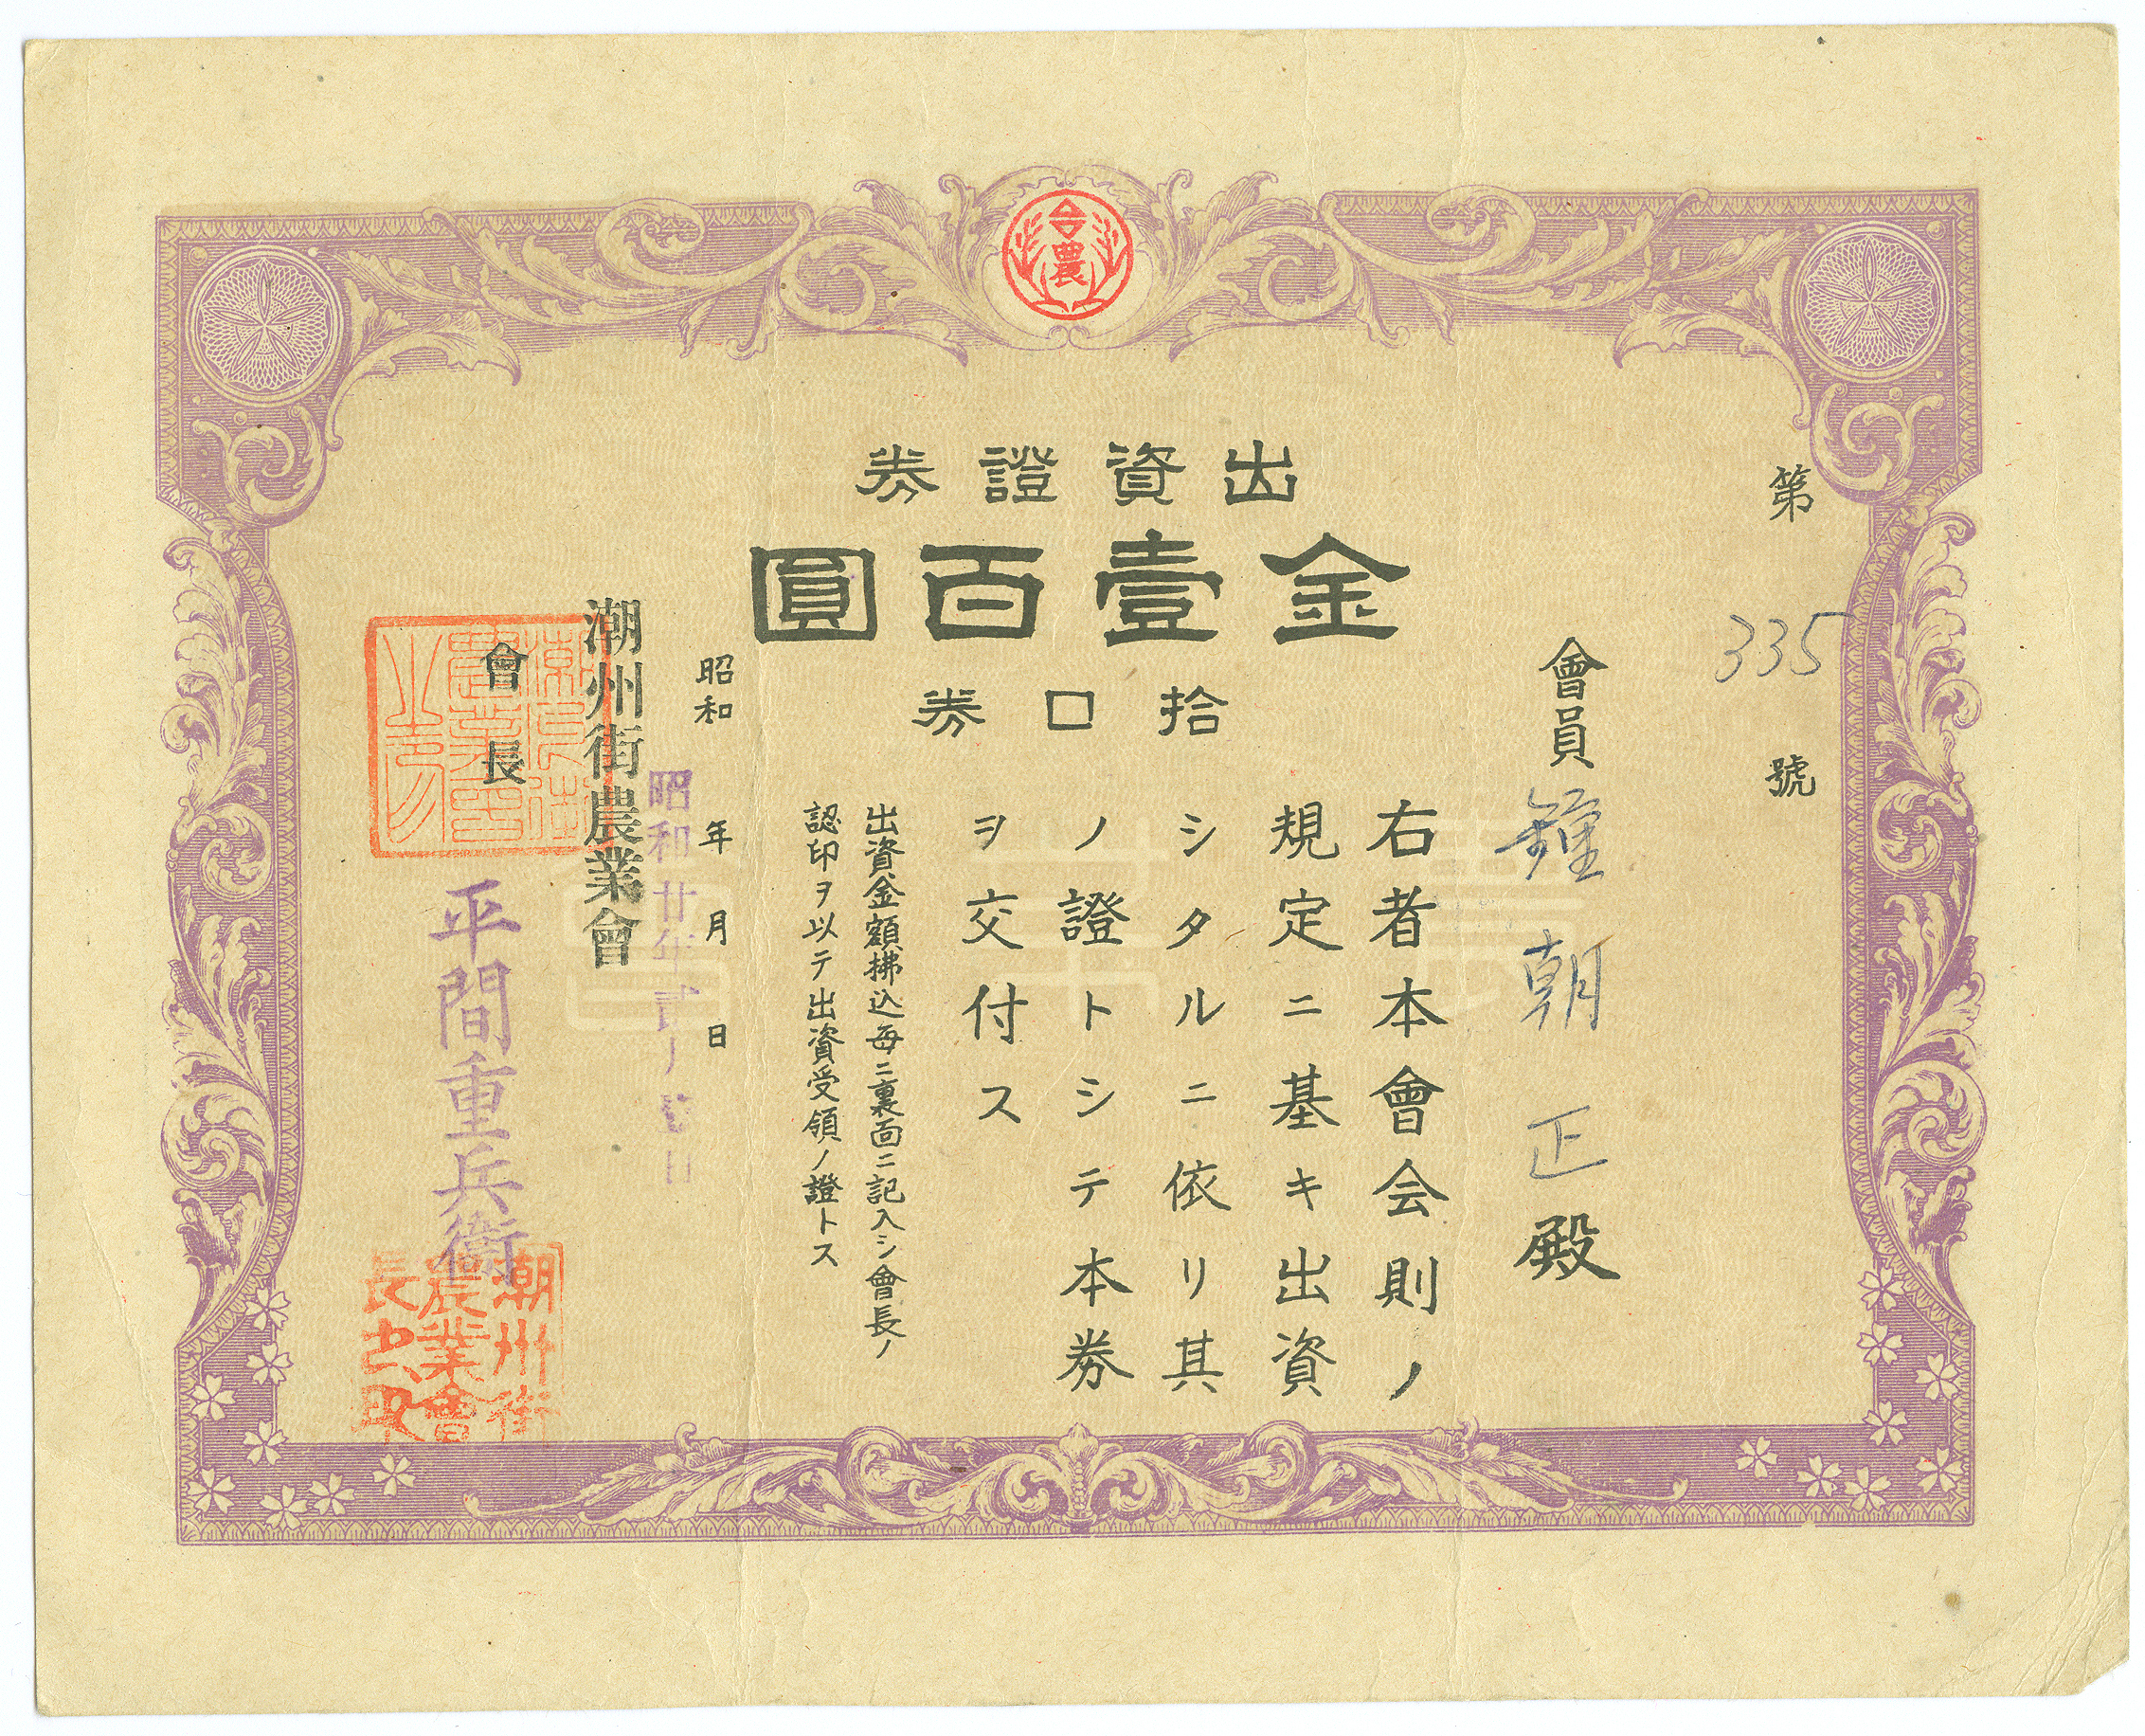 农
出資證券
金壹百圓
拾口券
第335號
會員鍾朝正殿
右者本會会則ノ
規定ニ基キ出資
シタルニ依リ其
ノ證トシテ本券
ヲ交付ス
出資金額拂込每ニ裏面ニ記入シ會長ノ
認印ヲ以テ出資受領ノ證トス
昭和 年 月 日
昭和廿年 月 日
潮州街農業會
會長
平間重兵衛
潮州街
農業會
長之
潮州街
農業會
之印
農業會